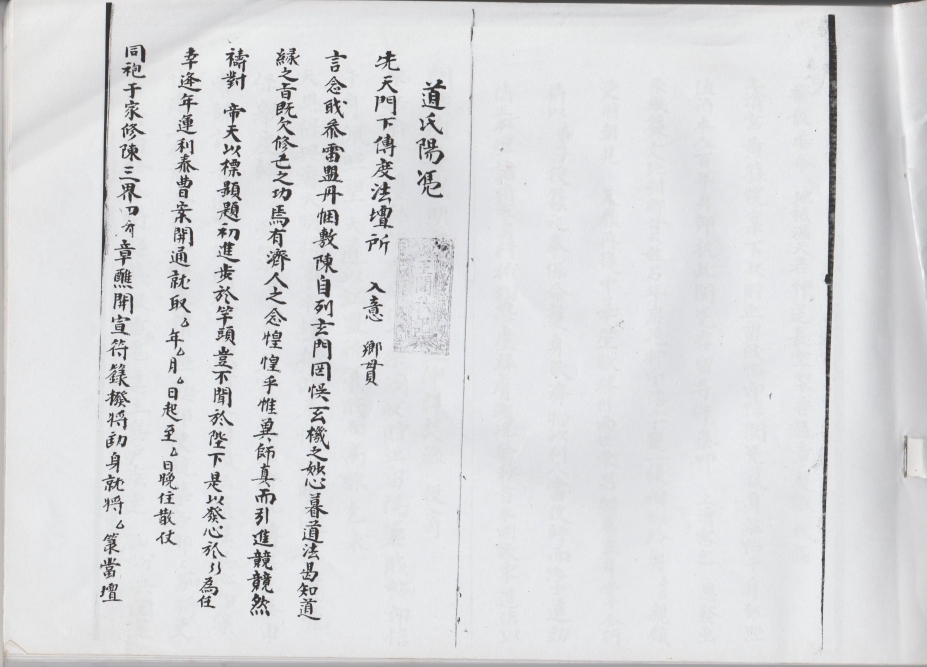 道氏陽憑
先天門下傳度法壇所 入意 鄉貫
言念戝叅雷盟丹悃敷陳自列玄門罔悮玄機之妙心暮道法曷知道
緣之旨既欠修己之功焉有濟人之念惶惶乎惟兾師真而引進競競然
禱對 帝天以標顯題初進步於竿頭豈不聞於陛下是以發心於 為任
幸逢年運利泰曹案開通就取厶年厶月厶日起至厶日晚住散仗
同袍于家修陳三界四府章醮開宣符籙撥將助身就將厶籙當壇